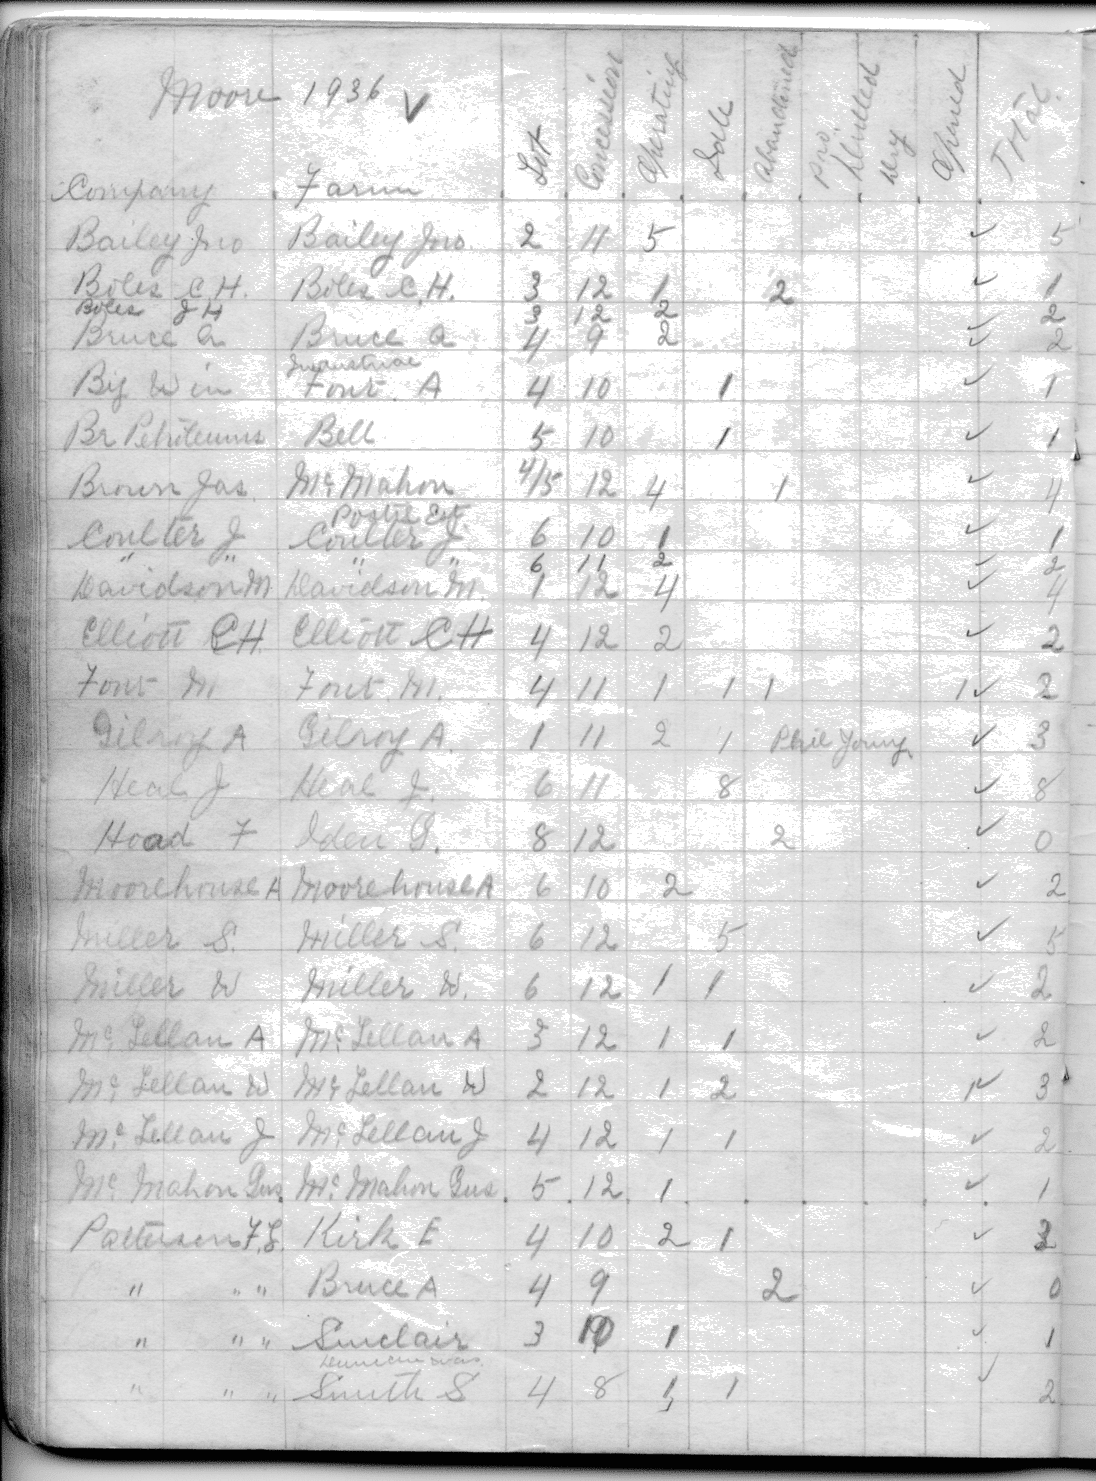 Moore 1936 ✓
Company Farm Lot Concession Operating Idle Abandoned Pro. Drilled Dry Total
Bailey Jno Bailey Jno. 2 11 5 ✓ 5
Boles C.H. Boles C.H. 3 12 1 2 ✓ 1
Boles J H 3 12 2 ✓ 2
Bruce A Bruce A 4 9 2 ✓ 2
Big Win Font. A 4 10 1 ✓ 1
Br Petroleums Bell 5 10 1 ✓ 1
Brown Jas. Mc Mahon 4/5 12 4 1 ✓ 4
Coulter J Coulter J. 6 10 1 ✓ 1
" " " " 6 11 2 ✓ 2
Davidson M Davidson M. 1 12 4 ✓ 4
Elliott CH Elliott CH 4 12 2 ✓ 2
Font M Font. M. 4 11 1 1 1 1 ✓ 2
Gilroy A Gilroy A. 1 11 2 1 Phil Young ✓ 3
Heal J Heal J. 6 11 8 ✓ 8
Hoad F Iden G. 8 12 2 ✓ 0
Moorehouse A Moorehouse A 6 10 2 ✓ 2
Miller S. Miller S. 6 12 5 ✓ 5
Miller W Miller W. 6 12 1 1 ✓ 2
Mc Lellan A Mc Lellan A 3 12 1 1 ✓ 2
Mc Lellan W Mc Lellan W 2 12 1 2 1 ✓ 3
Mc Lellan J Mc Lellan J 4 12 1 1 ✓ 2
Mc Mahon Gus. Mc Mahon Gus. 5 12 1 ✓ 1
Patterson F.L. Kirk E 4 10 2 1 ✓ 3
" " " Bruce A 4 9 2 ✓ 0
" " " Sinclair 3 10 1 ✓ 1
" " " Smith S 4 8 1 1 ✓ 2